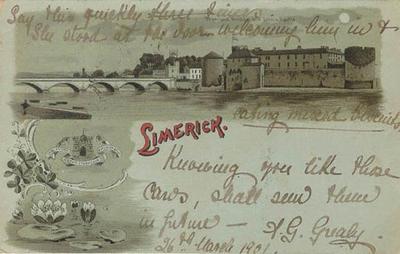 Say this quickly three times
She stood at the door welcoming him in &
eating mixed biscuits
LIMERICK.
Knowing you like those
Cards, shall send them
in future — A.G. Grealy.
26th March 1901.